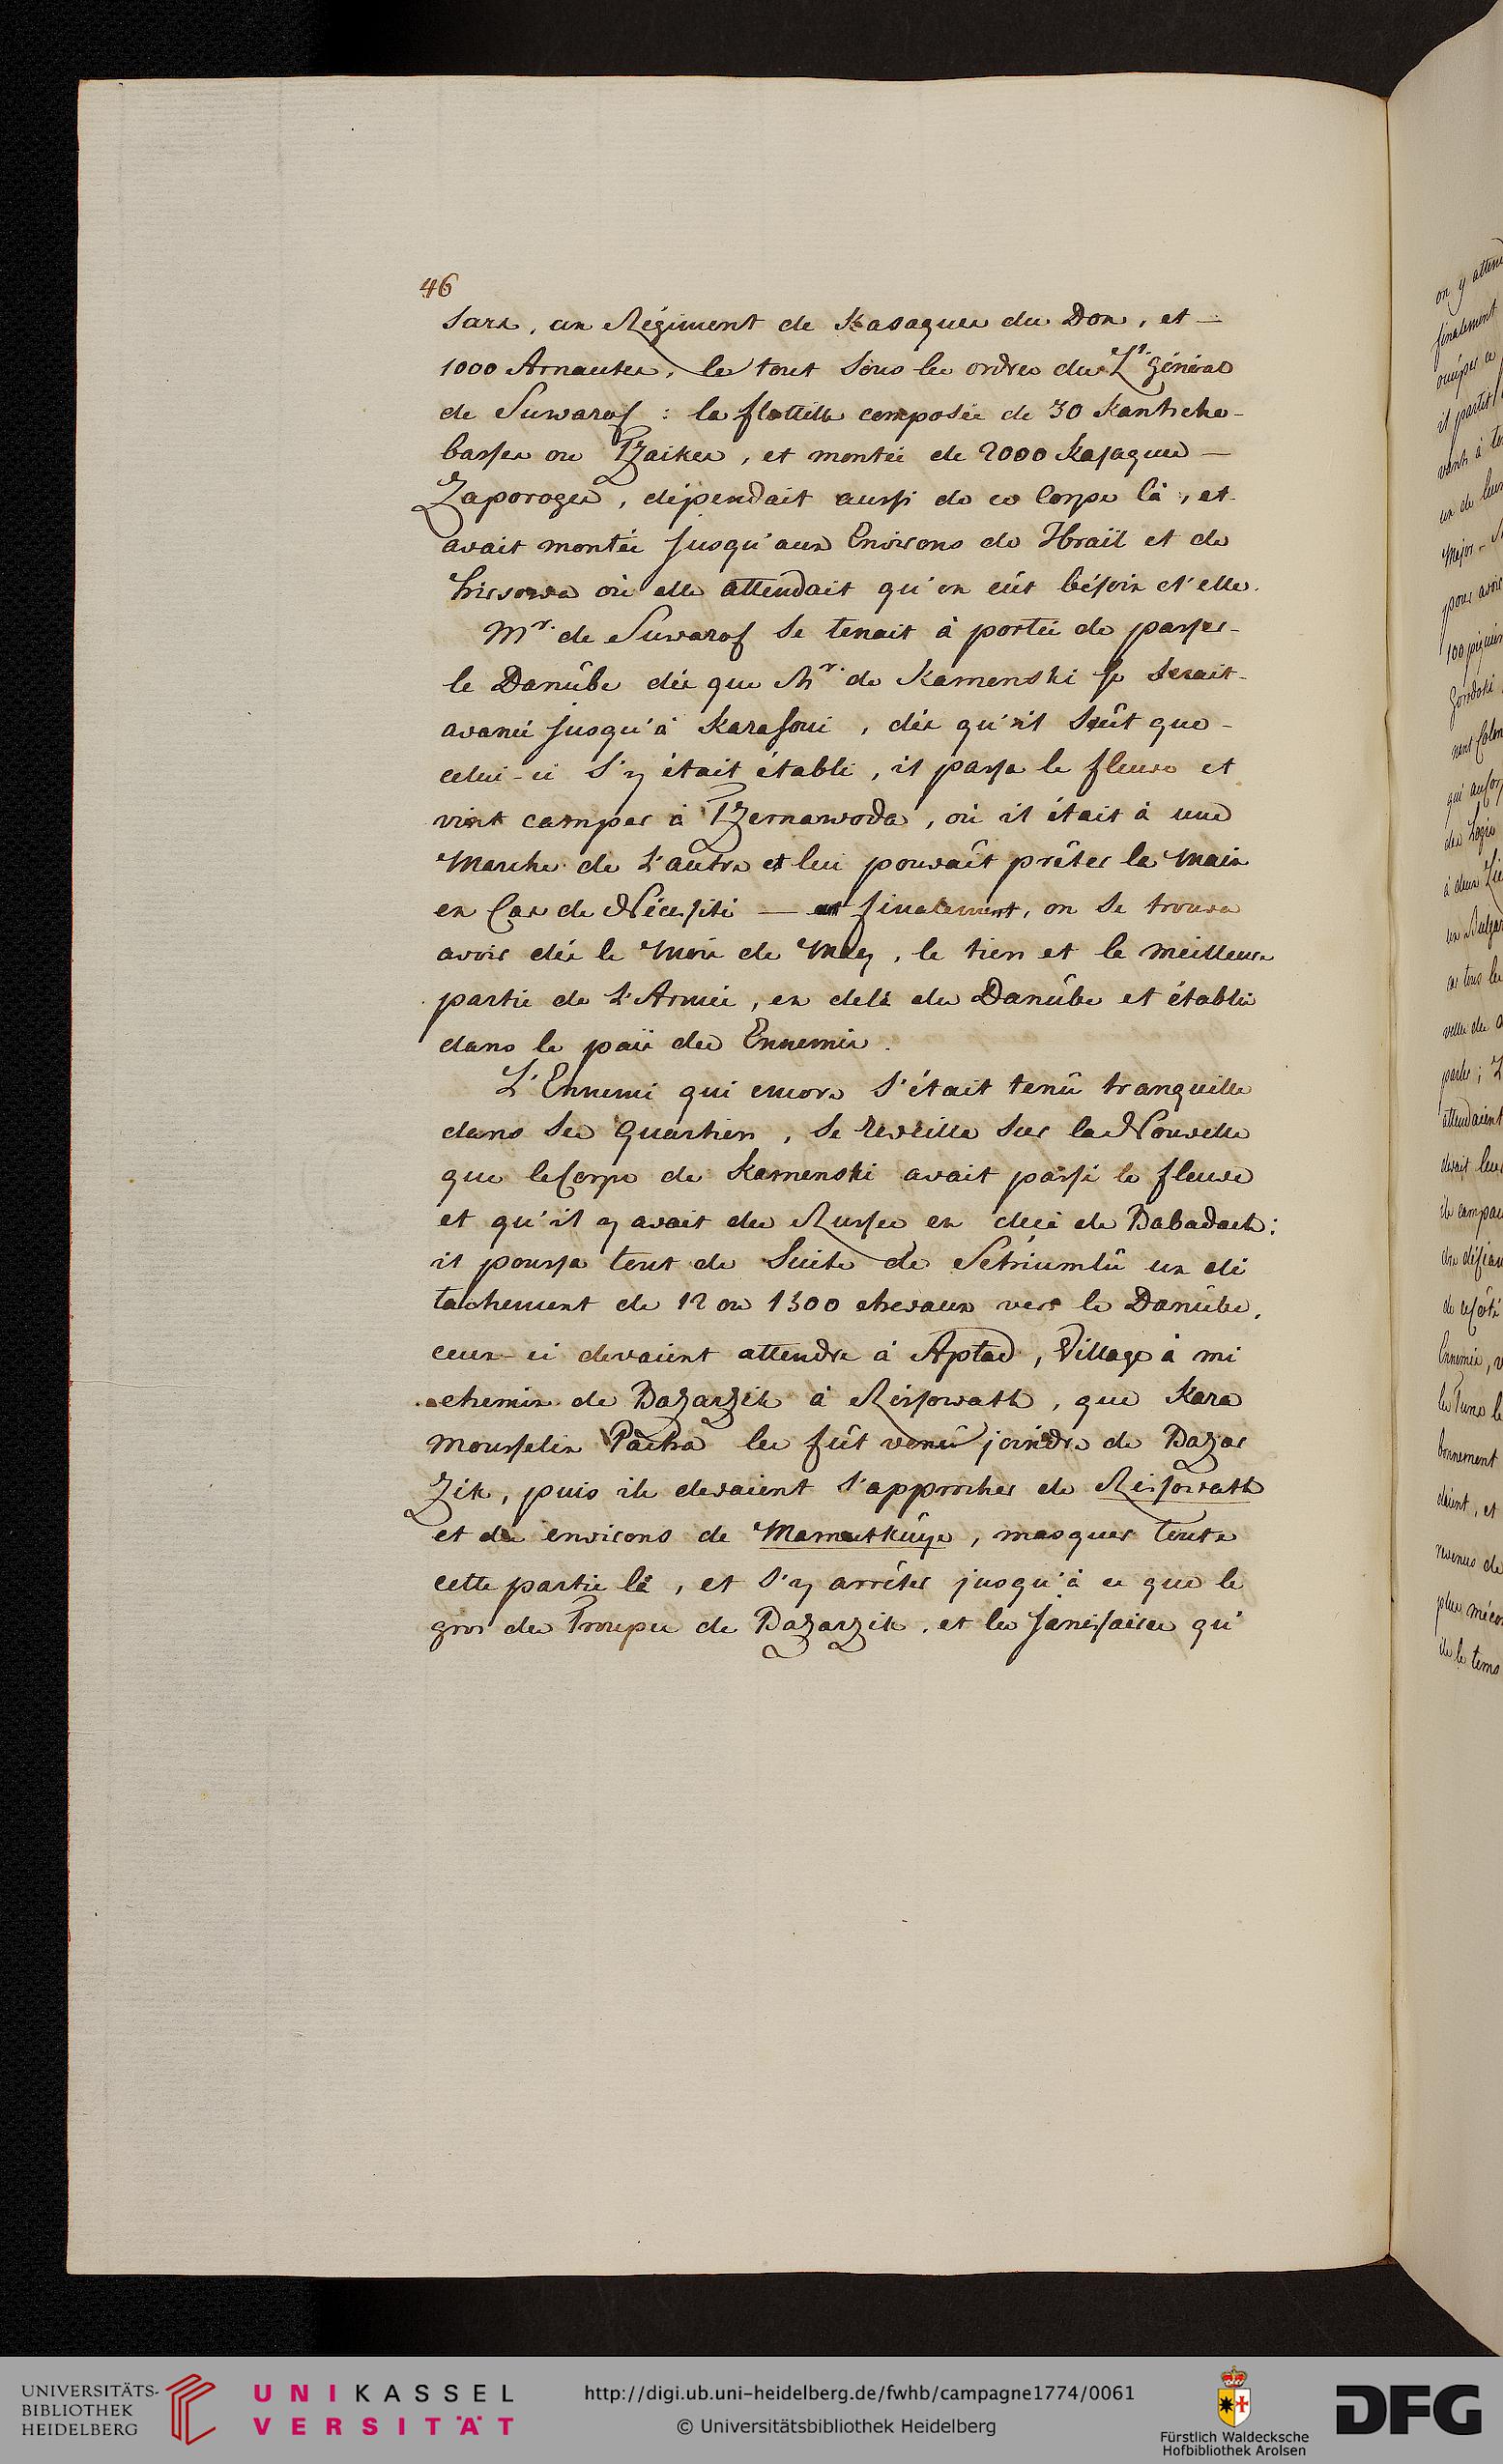 46
sars, un Régiment de Kasaques du Don, et —
1000 Arnautes, le tout sous les ordres du Lt. Général
de Suwarof : la flottille composée de 30 Kantscha-
basses ou Tzaikes, et montée de 2000 Kasaques —
Zaporoges, dépendait aussi de ce Corps là, et
avait montée jusqu'aux Environs de Ibraïl et de
hirsowa où elle attendait qu'on eût bésoin d'elle.
Mr. de Suwarof se tenait à portée de passer-
le Danûbe dés que Mr. de Kamenski se serait-
avancé jusqu'à Karasoui, dés qu'il sçût que-
celui-ci s'y était établi, il passa le fleuve et
vint camper à Tzernawoda, où il était à une
Marche de l'autre et lui pouvait prêter la main
en Cas de Nécessité — finalement, on se trouva
avoir dés le Mois de May, le tiers et la meilleure
partie de l'Armée, en delà du Danûbe et établie
dans le païs des Ennemis.
L'Ennemi qui encore s'était tenû tranquille
dans ses Quartiers, se reveilla sur la Nouvelle
que le Corps de Kamenski avait passé le fleuve
et qu'il y avait des Russes en deça de Babadach:
il poussa tout de suite de Schiumlû un dé
tachement de 12 ou 1300 chevaux vers le Danûbe,
ceux-ci devaient attendre à Aptad, Village à mi
chemin de Bazarzik à Rissowath, que Kara
mousselin Pacha les fût venû joindre de Bazar
Zik, puis ils devaient s'approcher de Rissowath
et des environs de Mamutkûye, masquer toute
cette partie là, et s'y arrêter jusqu'à ce que le
gros des Troupes de Bazarzik, et les Janissaires qu'
on y
finalement
occuper ce
il partit
un de leurs
Major
pour avoir
100
qui
à deux
un Bulgar
car tous les
attendaient
devait leur
de campa
de ce Côté
bonnement
revenus de
de le tems
UNIVERSITÄTS-
BIBLIOTHEK
HEIDELBERG
UNIKASSEL
VERSITÄT
http://digi.ub.uni-heidelberg.de/fwhb/campagne1774/0061
© Universitätsbibliothek Heidelberg
Fürstlich Waldecksche
Hofbibliothek Arolsen
DFG